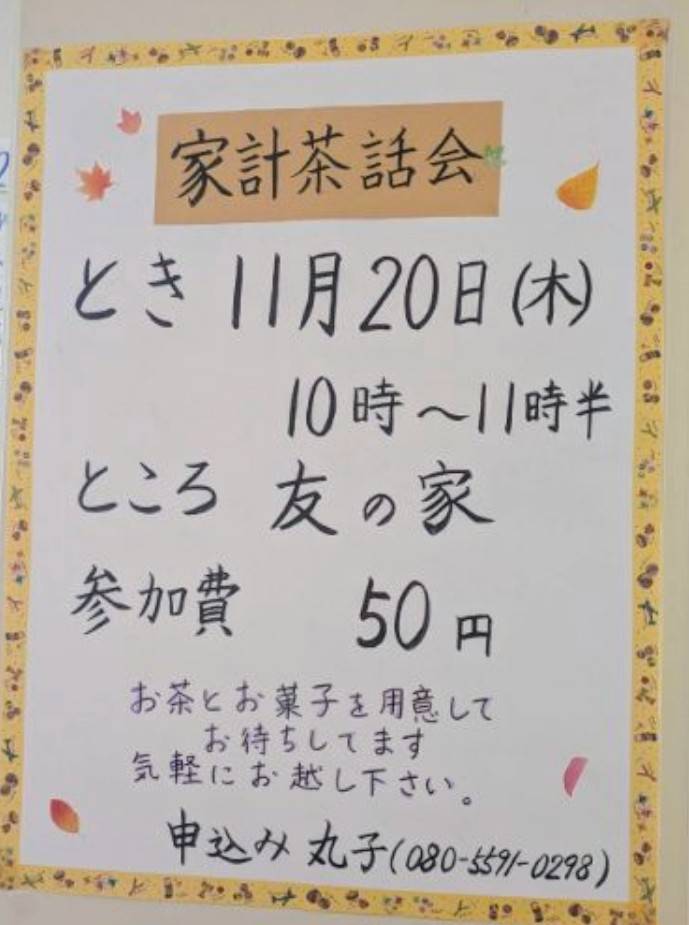 家計茶話会
とき 11月20日(木)
10時～11時半
ところ 友の家
参加費 50円
お茶とお菓子を用意して
お待ちしてます
気軽にお越し下さい。
申込み 丸子(080-5591-0298)